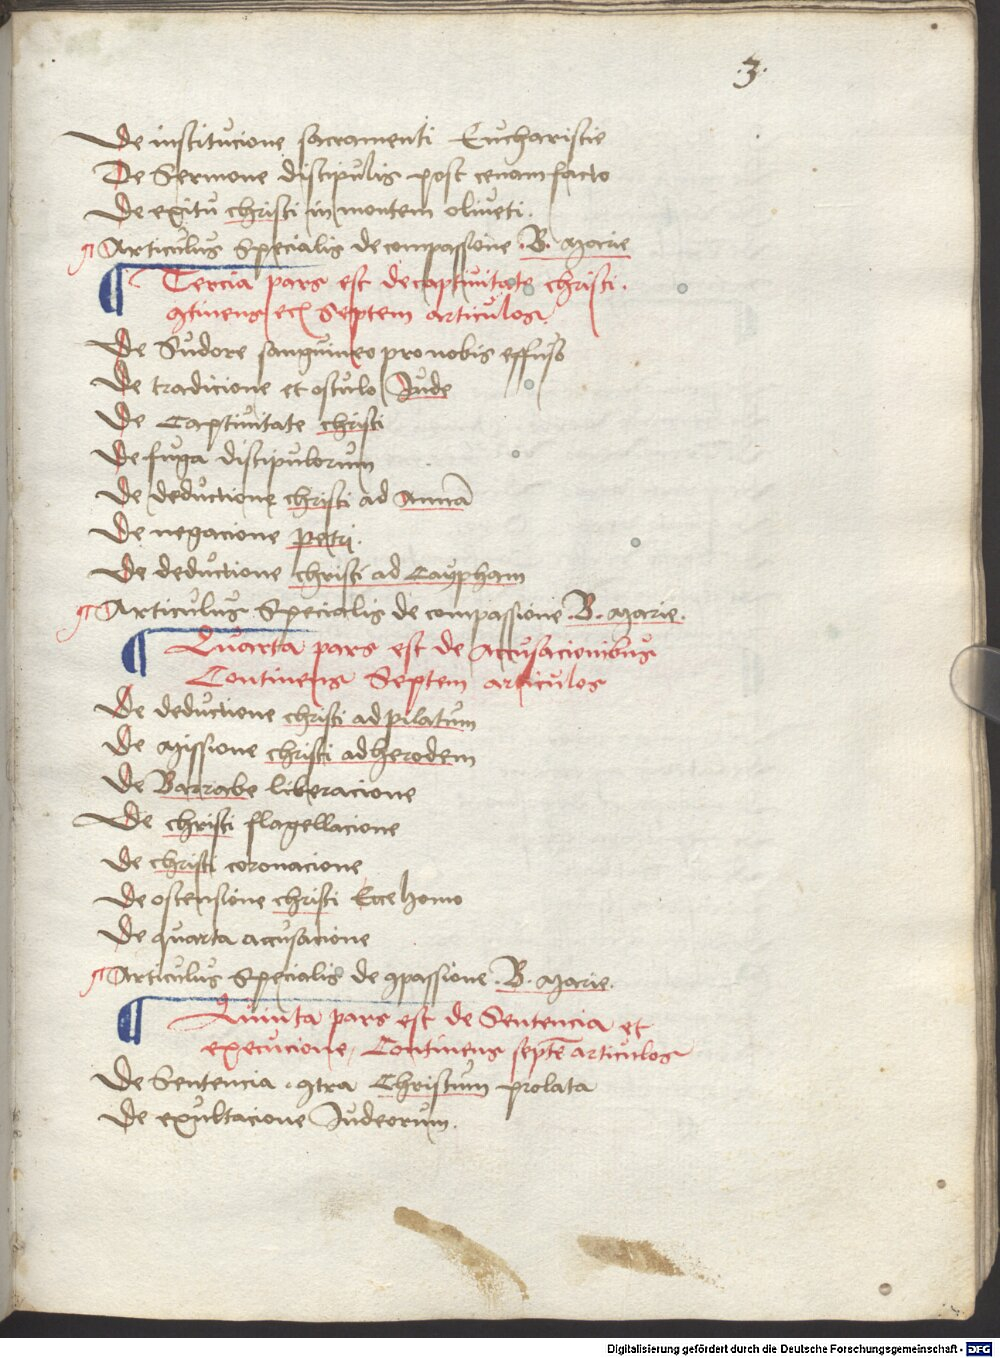 .3.
De institucione sacramenti Eucharistie
De Sermone discipulis post cenam facto
De exitu christi in montem oliveti.
¶ Articulus Specialis de compassione .B. Marie
¶ Tercia pars est de captivitate christi.
ꝯtinens Septem articulos.
De Sudore sanguineo pro nobis effuso
De tradicione et osculo Jude
De Captivitate christi
De fuga discipulorum
De deductione christi ad Annā
De negacione Petri.
De deductione christi ad Caypham
¶ Articulus Specialis de compassione .B. Marie.
¶ Quarta pars est de Accusacionibus
Continens Septem articulos
De deductione christi ad pilatum
De Missione christi ad herodem
De Barrabe liberacione
De christi flagellacione
De christi coronacione
De ostensione christi Ecce homo
De quarta accusacione
¶ Articulus Specialis de ꝯpassione .B. Marie.
¶ Quinta pars est de Sentencia et
execucione, Continens septē articulos
De Sentencia ꝯtra Christum prolata
De exultacione Judeorum.
Digitalisierung gefördert durch die Deutsche Forschungsgemeinschaft - DFG